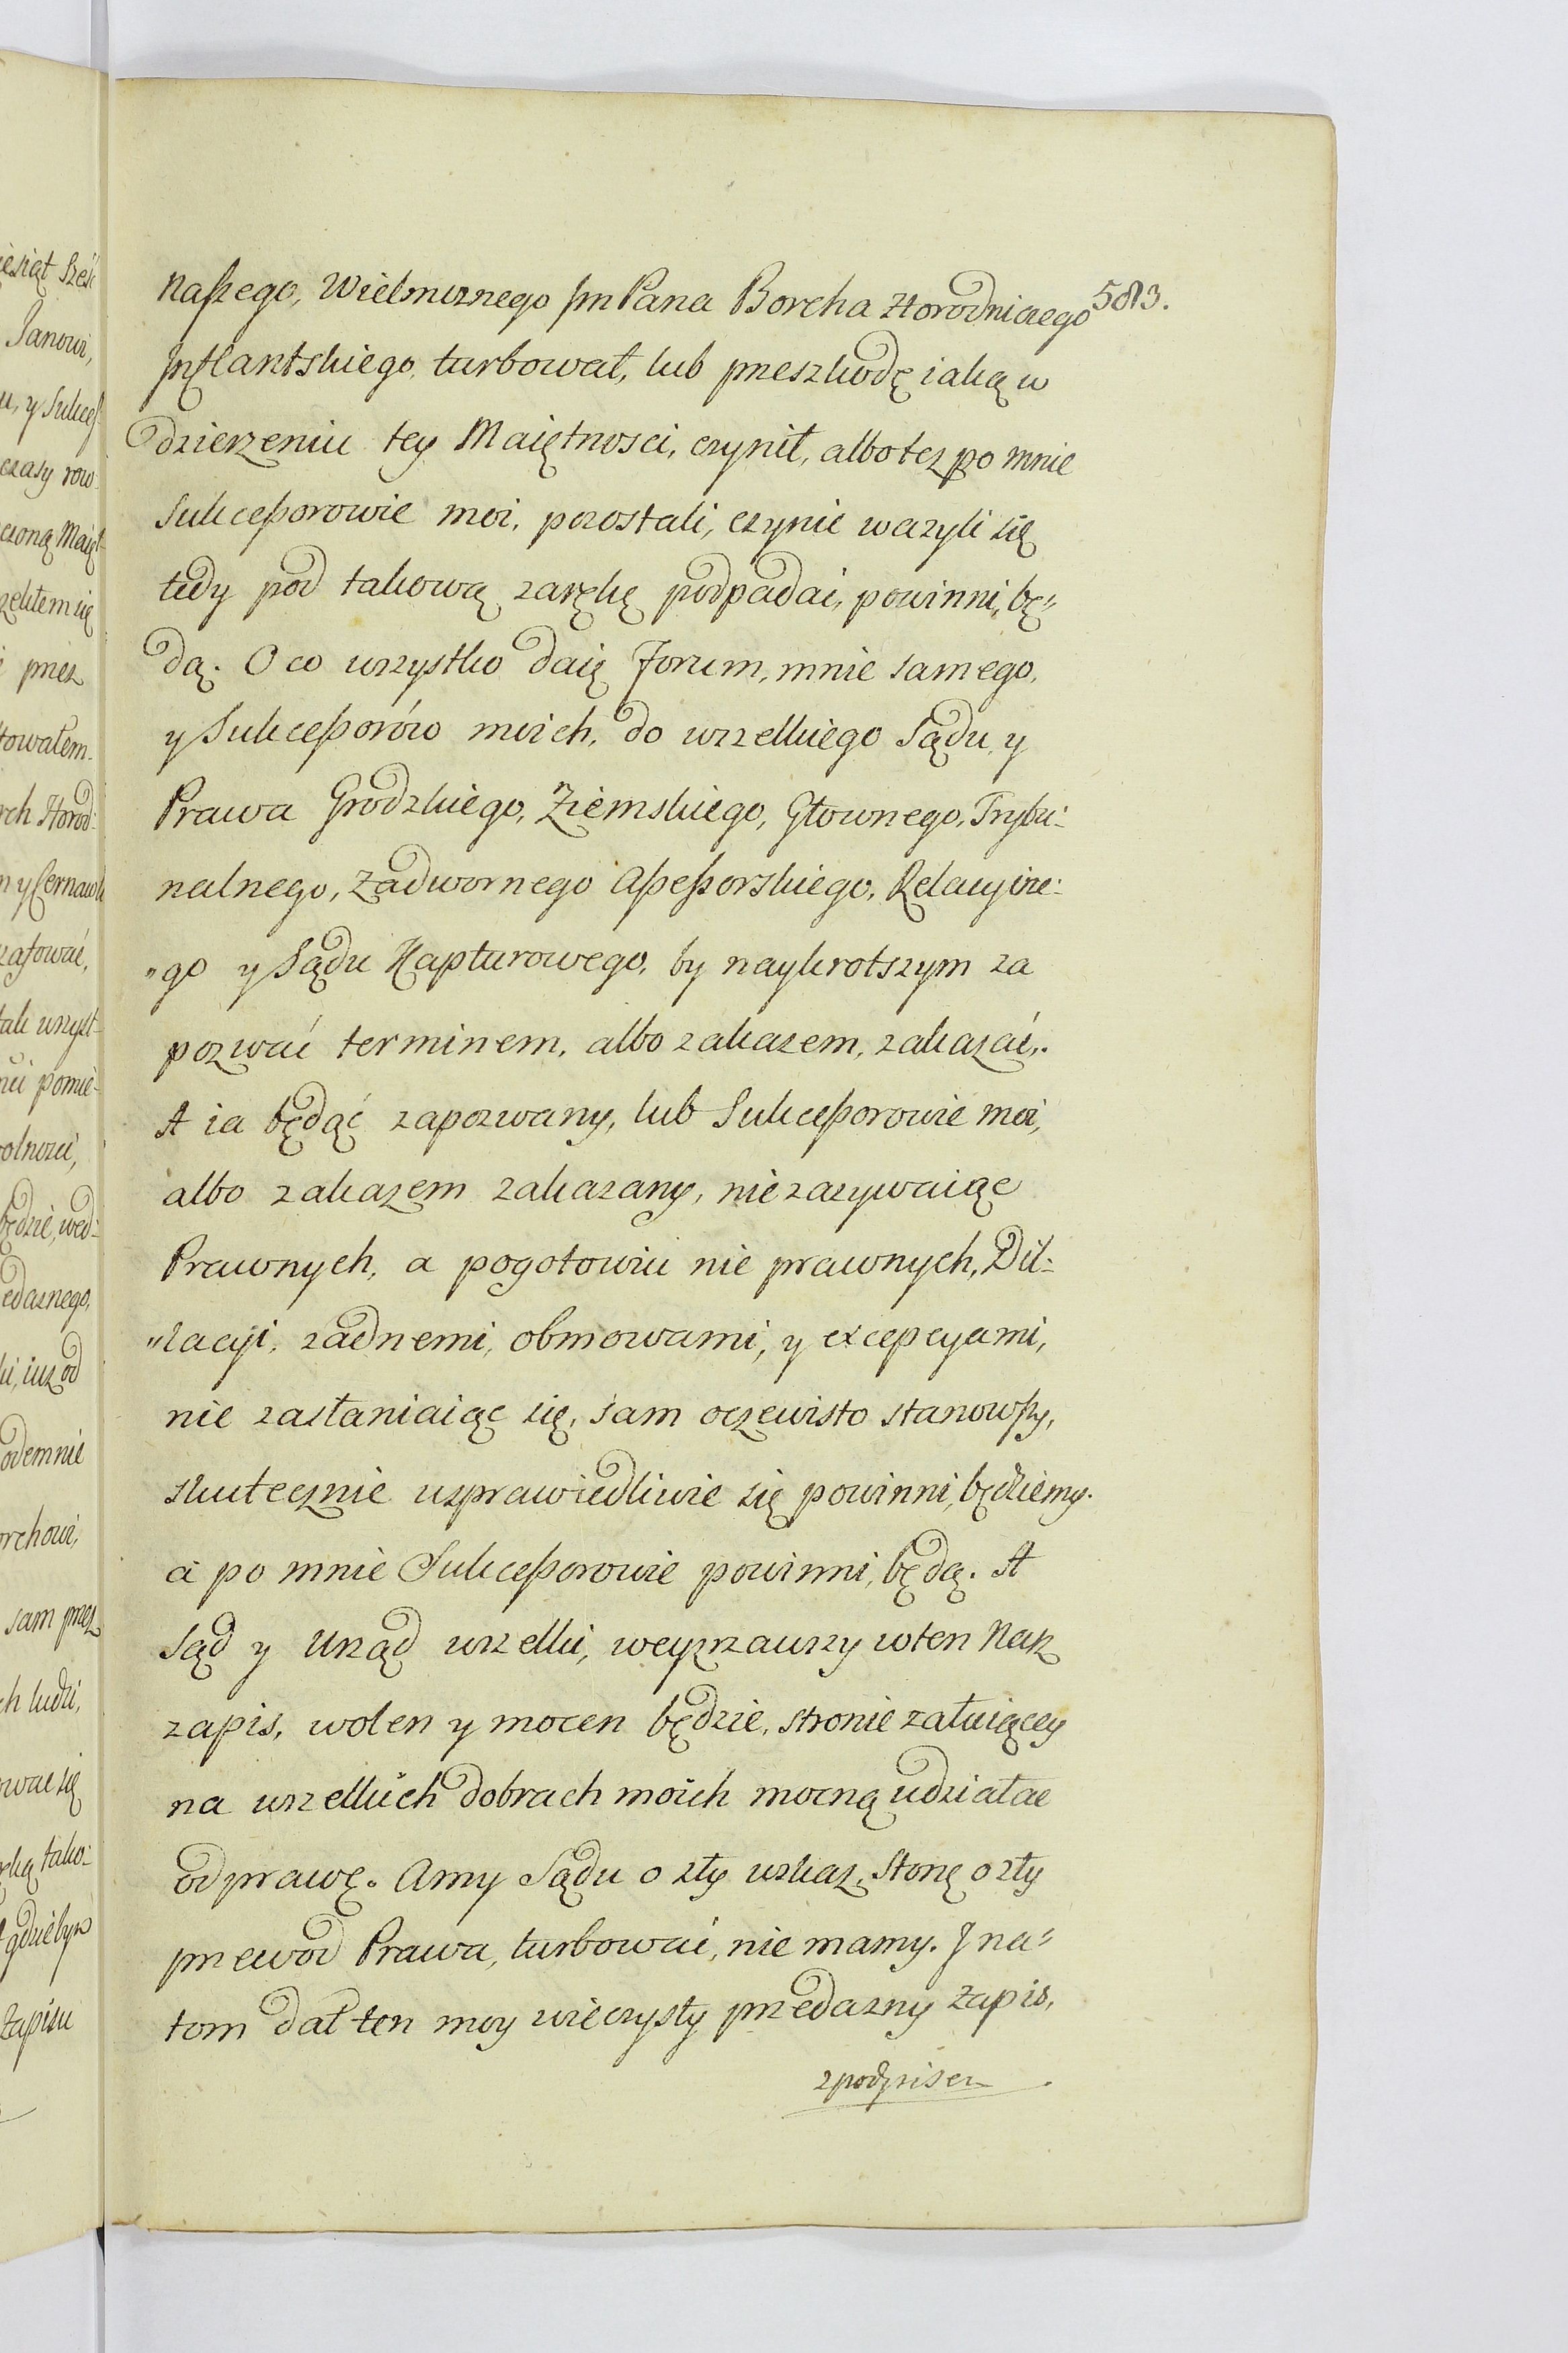 naszego, Wielmoznego Jm Pana Borcha Horodniczego 583.
Jnflantskiego, turbował, lub przeszkodę iaką w
dzierzeniu tey Maiętnosci, czynił, albo tez po mnie
Sukceßorowie moi, pozostali, czynic wazyli się
tedy pod takową zarękę podpadać, powinni, bę„
dą. O co wszystko daię Forum, mnie samego,
y Sukceßorów moich, do wszelkiego Sądu, y
Prawa Grodzkiego, Ziemskiego, Głownego, Trybu:
nalnego, Zadwornego Aßeßorskiego, Relacyine:
„go y Sądu Kapturowego, by naykrotszym za
pozwać terminem, albo zakazem, zakazać,.
A ia będąć zapozwany, lub Sukceßorowie moi,
albo zakazem zakazany, nie zazywaiąc
Prawnych, a pogotowiu nie prawnych, Dil:
„lacyi, zadnemi, obmowami, y excepcyami,
nie zasłaniaiąc się, sam oczewisto stanowszy,
skutecznie usprawiedliwic się powinni, będziemy.
a po mnie Sukceßorowie powinni, będą. A
Sąd y Urząd wszelki, weyzrzawszy w ten nasz
zapis, wolen y mocen będzie, stronie załuiącey
na wszelkich dobrach moich mocną udziałac
odprawę. A my Sądu o zły wskaz, Stonę o zły
przewod Prawa, turbować, nie mamy. J na„
tom dał ten moy wieczysty przedazny zapis,
z podpisem
iesiąt szesć
Janowi,
u, y Sukceß
czasy row:
czoną Maięt
rzekłem się
przez
towałem.
rch Horod:
n y Czernaw
zafować,
tak wszyst
pomie:
olnosci,
będzie, wed:
edaznego,
ki, iuz od
odemnie
orchowi,
sam przez
ch ludzi,
ować się
ręką tako:
gdzie bym
Zapisu